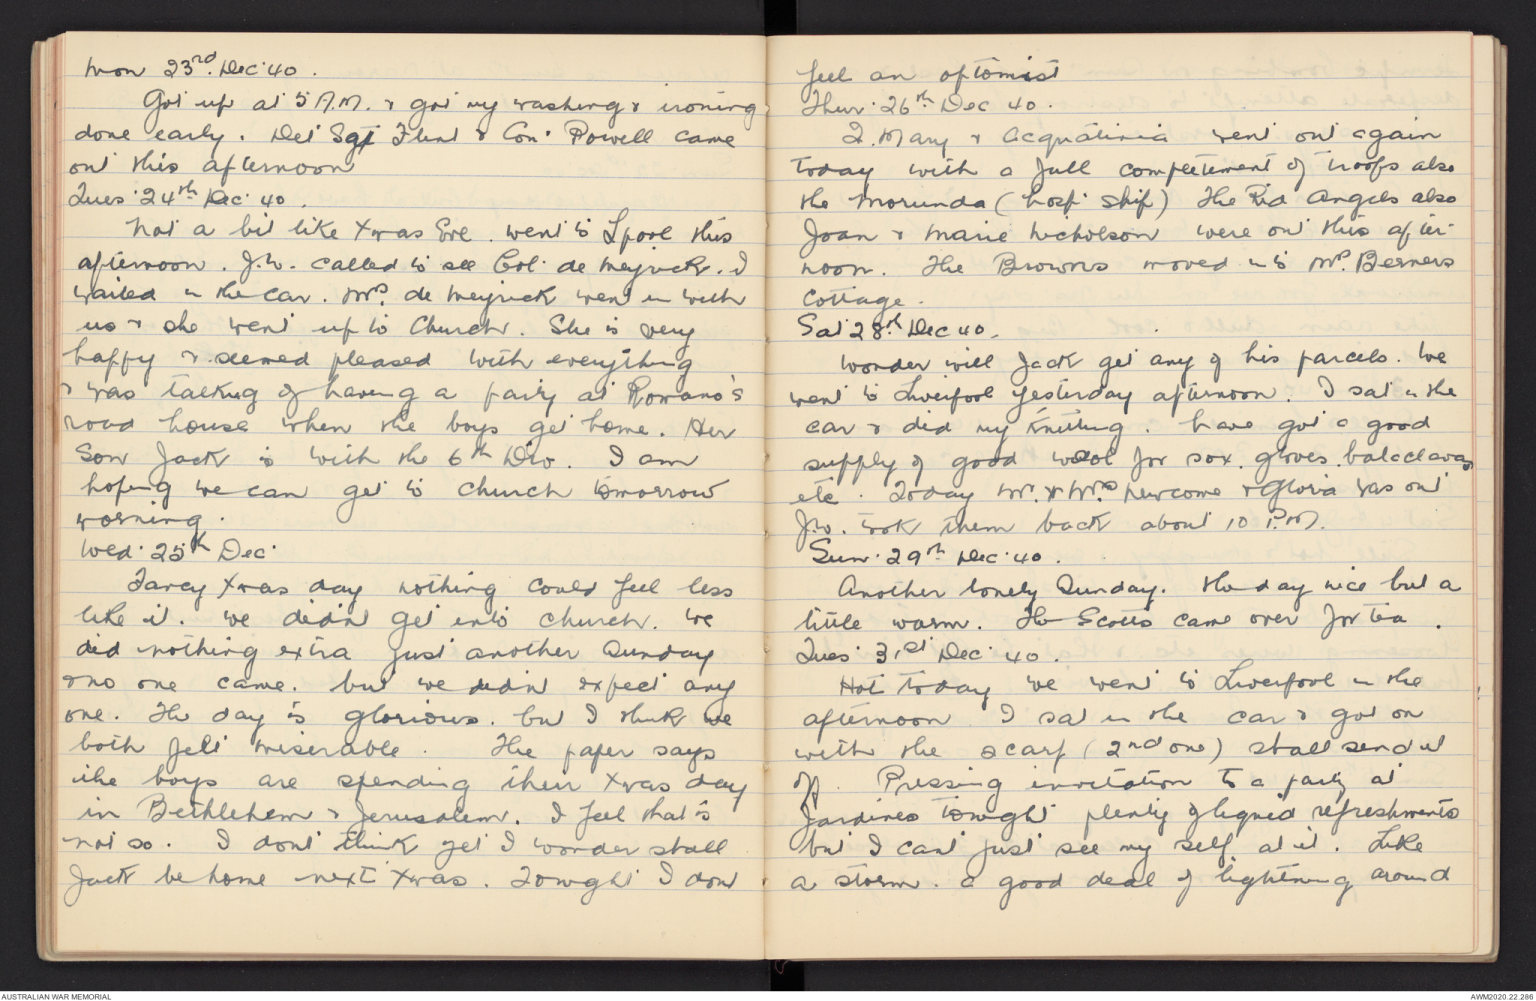 Mon 23rd. Dec. 40.
Got up at 5 A.M. & got my washing & ironing
done early. Det Sgt Flint & Con. Powell came
out this afternoon
Tues. 24th Dec. 40.
Not a bit like Xmas Eve. went to Lpool this
afternoon. J.W. called to see Col. de Meyrick. I
waited in the car. Mrs. de Meyrick went in with
us & she went up to Church. She is very
happy & seemed pleased with everything
& was talking of having a party at Romano's
road house when the boys get home. Her
Son Jack is with the 6th Div. I am
hoping we can get to church tomorrow
morning.
Wed. 25th Dec.
Fancy Xmas day nothing could feel less
like it. We didn't get into church. We
did nothing extra just another Sunday
& no one came. but we didn't expect any
one. The day is glorious. but I think we
both felt miserable. The paper says
the boys are spending their Xmas day
in Bethlehem & Jerusalem. I feel that is
not so. I don't think yet I wonder shall
Jack be home next Xmas. Tonight I don't
feel an optomist
Thur. 26th Dec 40.
Q. Mary & Acquatinia went out again
today with a full compleetement of troops also
the Morunda (hosp. ship) The Rid Angels also
Joan & Marie Nicholson were out this after-
noon. The Browns moved into Mrs. Berners
cottage.
Sat 28th Dec 40.
Wonder will Jack get any of his parcels. We
went to Liverpool yesterday afternoon. I sat in the
car & did my knitting. have got a good
supply of good wool for sox. gloves. balaclavas
etc. Today Mr. & Mrs Newcome & Gloria was out
J.W. took them back about 10 P.M.
Sun. 29th Dec. 40.
Another lonely Sunday. the day nice but a
little warm. The Scotts came over for tea.
Tues. 31st Dec. 40.
Hot today we went to Liverpool in the
afternoon I sat in the car & got on
with the scarf (2nd one) shall send it
off. Pressing invitation to a party at
Jardines tonight plenty of liquid refreshments
but I can't just see my self at it. Like
a storm. a good deal of lightning around
AUSTRALIAN WAR MEMORIAL
AWM2020.22.286